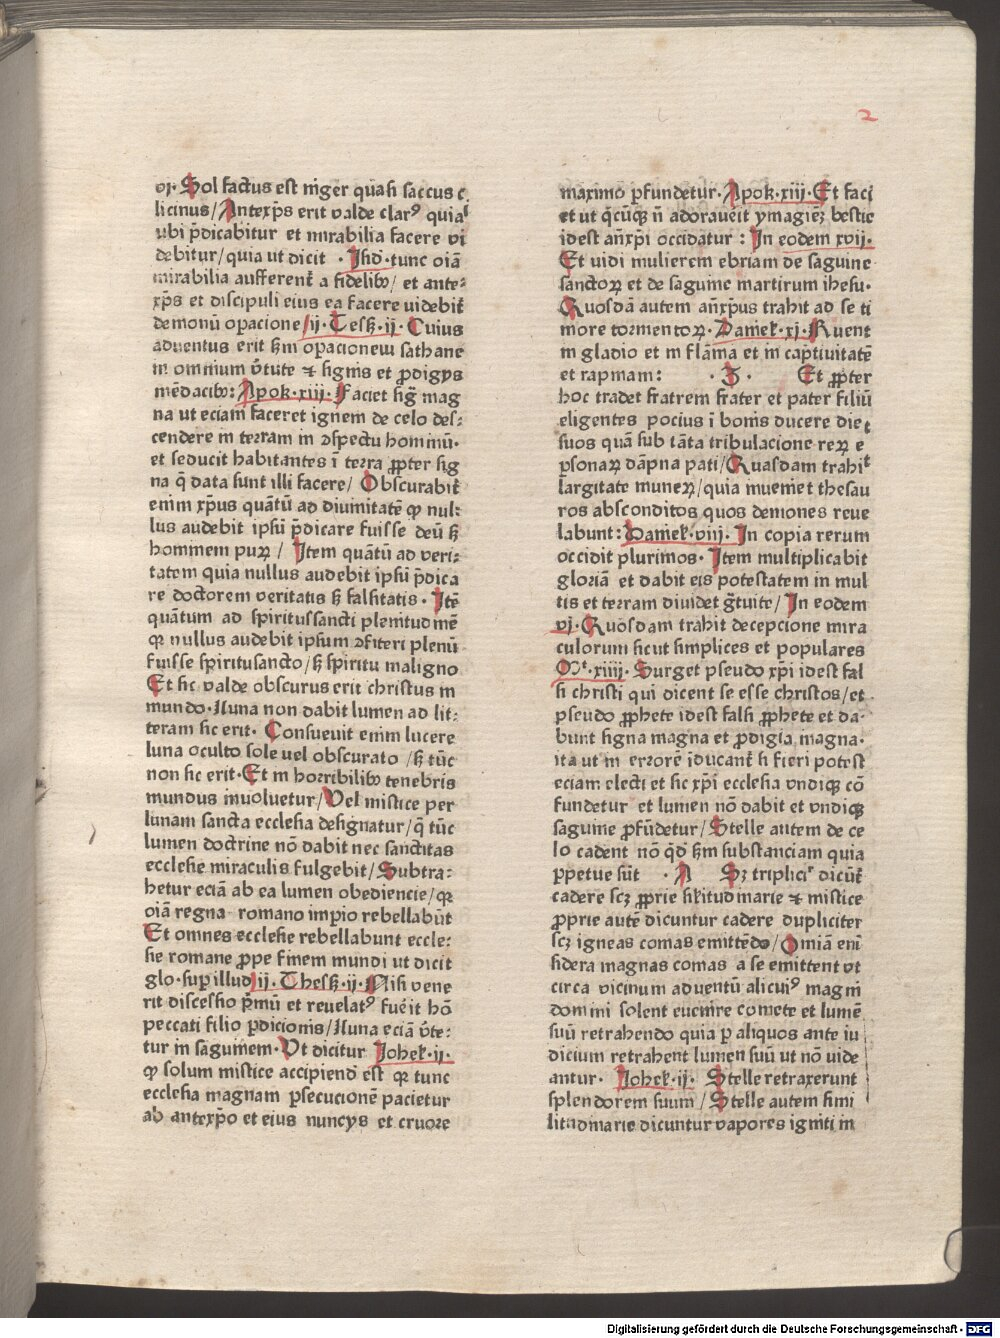 2
vj. Sol factus est niger quasi saccus c
licinus/ Antexp̄s erit valde clarꝰ quia
ubi p̄dicabitur et mirabilia facere vi
debitur/ quia ut dicit · Isid̄· tunc oīa
mirabilia aufferent̄ a fidelibꝫ/ et ante⸗
xp̄s et discipuli eius ea facere uidebit̄
demonū oꝑacione/ ij· Tess̄· ij· Cuius
aduentus erit s̄m oꝑacionem sathane
in omnium v̄tute ⁊ signis et ꝓdigijs
mēdacibꝫ: Apok·xiii· Faciet siḡ mag
na ut eciam faceret ignem de celo des⸗
cendere in terram in ꝯspectu hominū·
et seducit habitantes ī terra ꝓpter sig
na q̄ data sunt illi facere/ Obscurabit̄
enim xp̄us quātū ad diuinitatē ꝙ nul⸗
lus audebit ipsū p̄dicare fuisse deū sꝫ
hominem puꝝ / Item quātū ad veri⸗
tatem quia nullus audebit ipsū p̄dica
re doctorem veritatis sꝫ falsitatis · Itē
quātum ad spiritussancti plenitudinē
ꝙ nullus audebit ipsum ꝯfiteri plenū
fuisse spiritusancto/ sꝫ spiritu maligno
Et sic valde obscurus erit christus in
mundo· Luna non dabit lumen ad lit⸗
teram sic erit· Consueuit enim lucere
luna oculto sole vel obscurato /sꝫ tūc
non sic erit· Et in horribilibꝫ tenebris
mundus inuoluetur/ Vel mistice per
lunam sancta ecclesia designatur/ q̄ tūc
lumen doctrine nō dabit nec sanctitas
ecclesie miraculis fulgebit/ Subtra⸗
hetur eciā ab ea lumen obediencie/ ꝙ
oīā regna romano impio rebellabūt
Et omnes ecclesie rebellabunt eccle⸗
sie romane ꝓpe finem mundi ut dicit
glo· suꝑ illud ij· Thess̄· ij· Nisi vene
rit discessio p̄mū et reuelatꝰ fuēit hō
peccati filio ꝑdicionis/ Luna eciā v̄te⸗
tur in sagninem· Vt dicitur Johel· ij·
ꝙ solum mistice accipiend̄ est ꝙ tunc
ecclesia magnam ꝑsecucionē pacietur
ab antexp̄o et eius nuncijs et cruore
maximo ꝓfundetur· Apok·xiii· Et faci
et ut q̄cūqꝫ n̄ adorauēit ymaginēꝫ bestie
idest an̄xp̄i occidatur : In eodem xvij·
Et uidi mulierem ebriam de sagnine
sanctoꝝ et de sagnine martirum ihesu·
Quosdā autem an̄xp̄us trahit ad se ti
more tormentoꝝ· Daniel· xj· Ruent
in gladio et in flāma et in captiuitatē
et rapinam: · 3 · Et ꝓpter
hoc tradet fratrem frater et pater filiū
eligentes pocius ī bonis ducere die
suos quā sub tāta tribulacione reꝝ e
ꝑsonaꝝ dāpna pati/ Quasdam trahit
largitate muneꝝ/ quia inueniet thesau
ros absconditos quos demones reue
labunt: Daniel· viij· In copia rerum
occidit plurimos· Item multiplicabit
gloriā et dabit eis potestatem in mul
tis et terram diuidet ḡtuite/ In eodem
vj· Quosdam trahit decepcione mira
culorum sicut simplices et populares
Mᵗ·xiiij· Surget pseudo xp̄i idest fal
si christi qui dicent se esse christos/ et
pseudo ꝓphete idest falsi ꝓphete et da⸗
bunt signa magna et ꝓdigia magna·
ita ut in errorē īducant̄ si fieri potest
eciam electi et sic xp̄i ecclesia vndiqꝫ cō
fundetur et lumen nō dabit et vndiqꝫ
sagnine ꝓfūdetur/ Stelle autem de ce
lo cadent nō q̄d s̄m substanciam quia
ꝑpetue sūt · A Sꝫ triplicit̄ dicūt̄
cadere scꝫ ꝓprie silitudinarie ⁊ mistice
ꝓprie autē dicuntur cadere dupliciter
scꝫ igneas comas emittēdo/ Omiā eni
sidera magnas comas a se emittent vt
circa vicinum aduentū alicuiꝰ magni
domini solent euenire comete et lumē
suū retrahendo quia ꝑ aliquos ante iu
dicium retrahent lumen suū ut nō uide
antur· Johel· ij· Stelle retraxerunt
splendorem suum/ Stelle autem simi
litudinarie dicuntur vapores igniti in
Digitalisierung gefördert durch die Deutsche Forschungsgemeinschaft - DFG